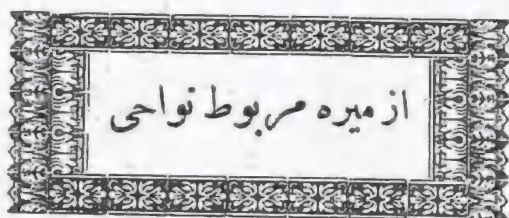 ازمیره مربوط نواحی